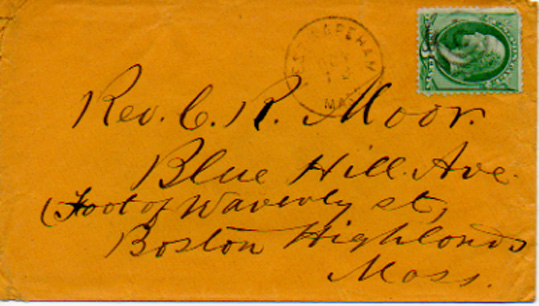 WEST WAREHAM
MASS
Rev. C. R. Moor.
Blue Hill Ave.
(Foot of Waverly st,
Boston Highlands
Mass.